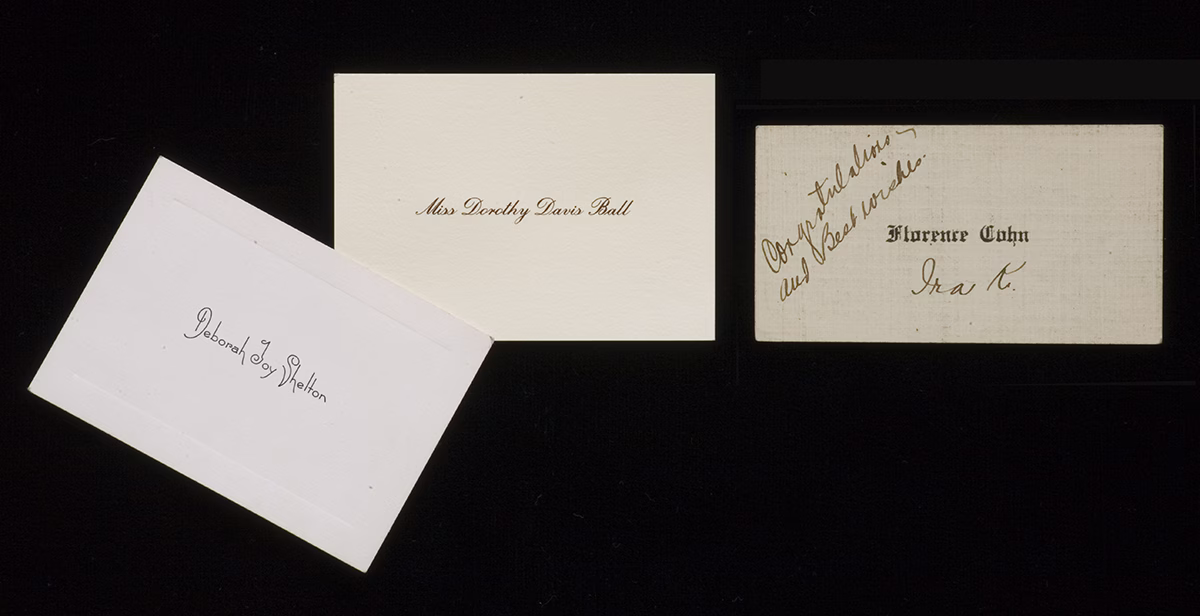 Deborah Joy Shelton
Miss Dorothy Davis Ball
Congratulations
and Best wishes.
Florence Cohn
Ira K.